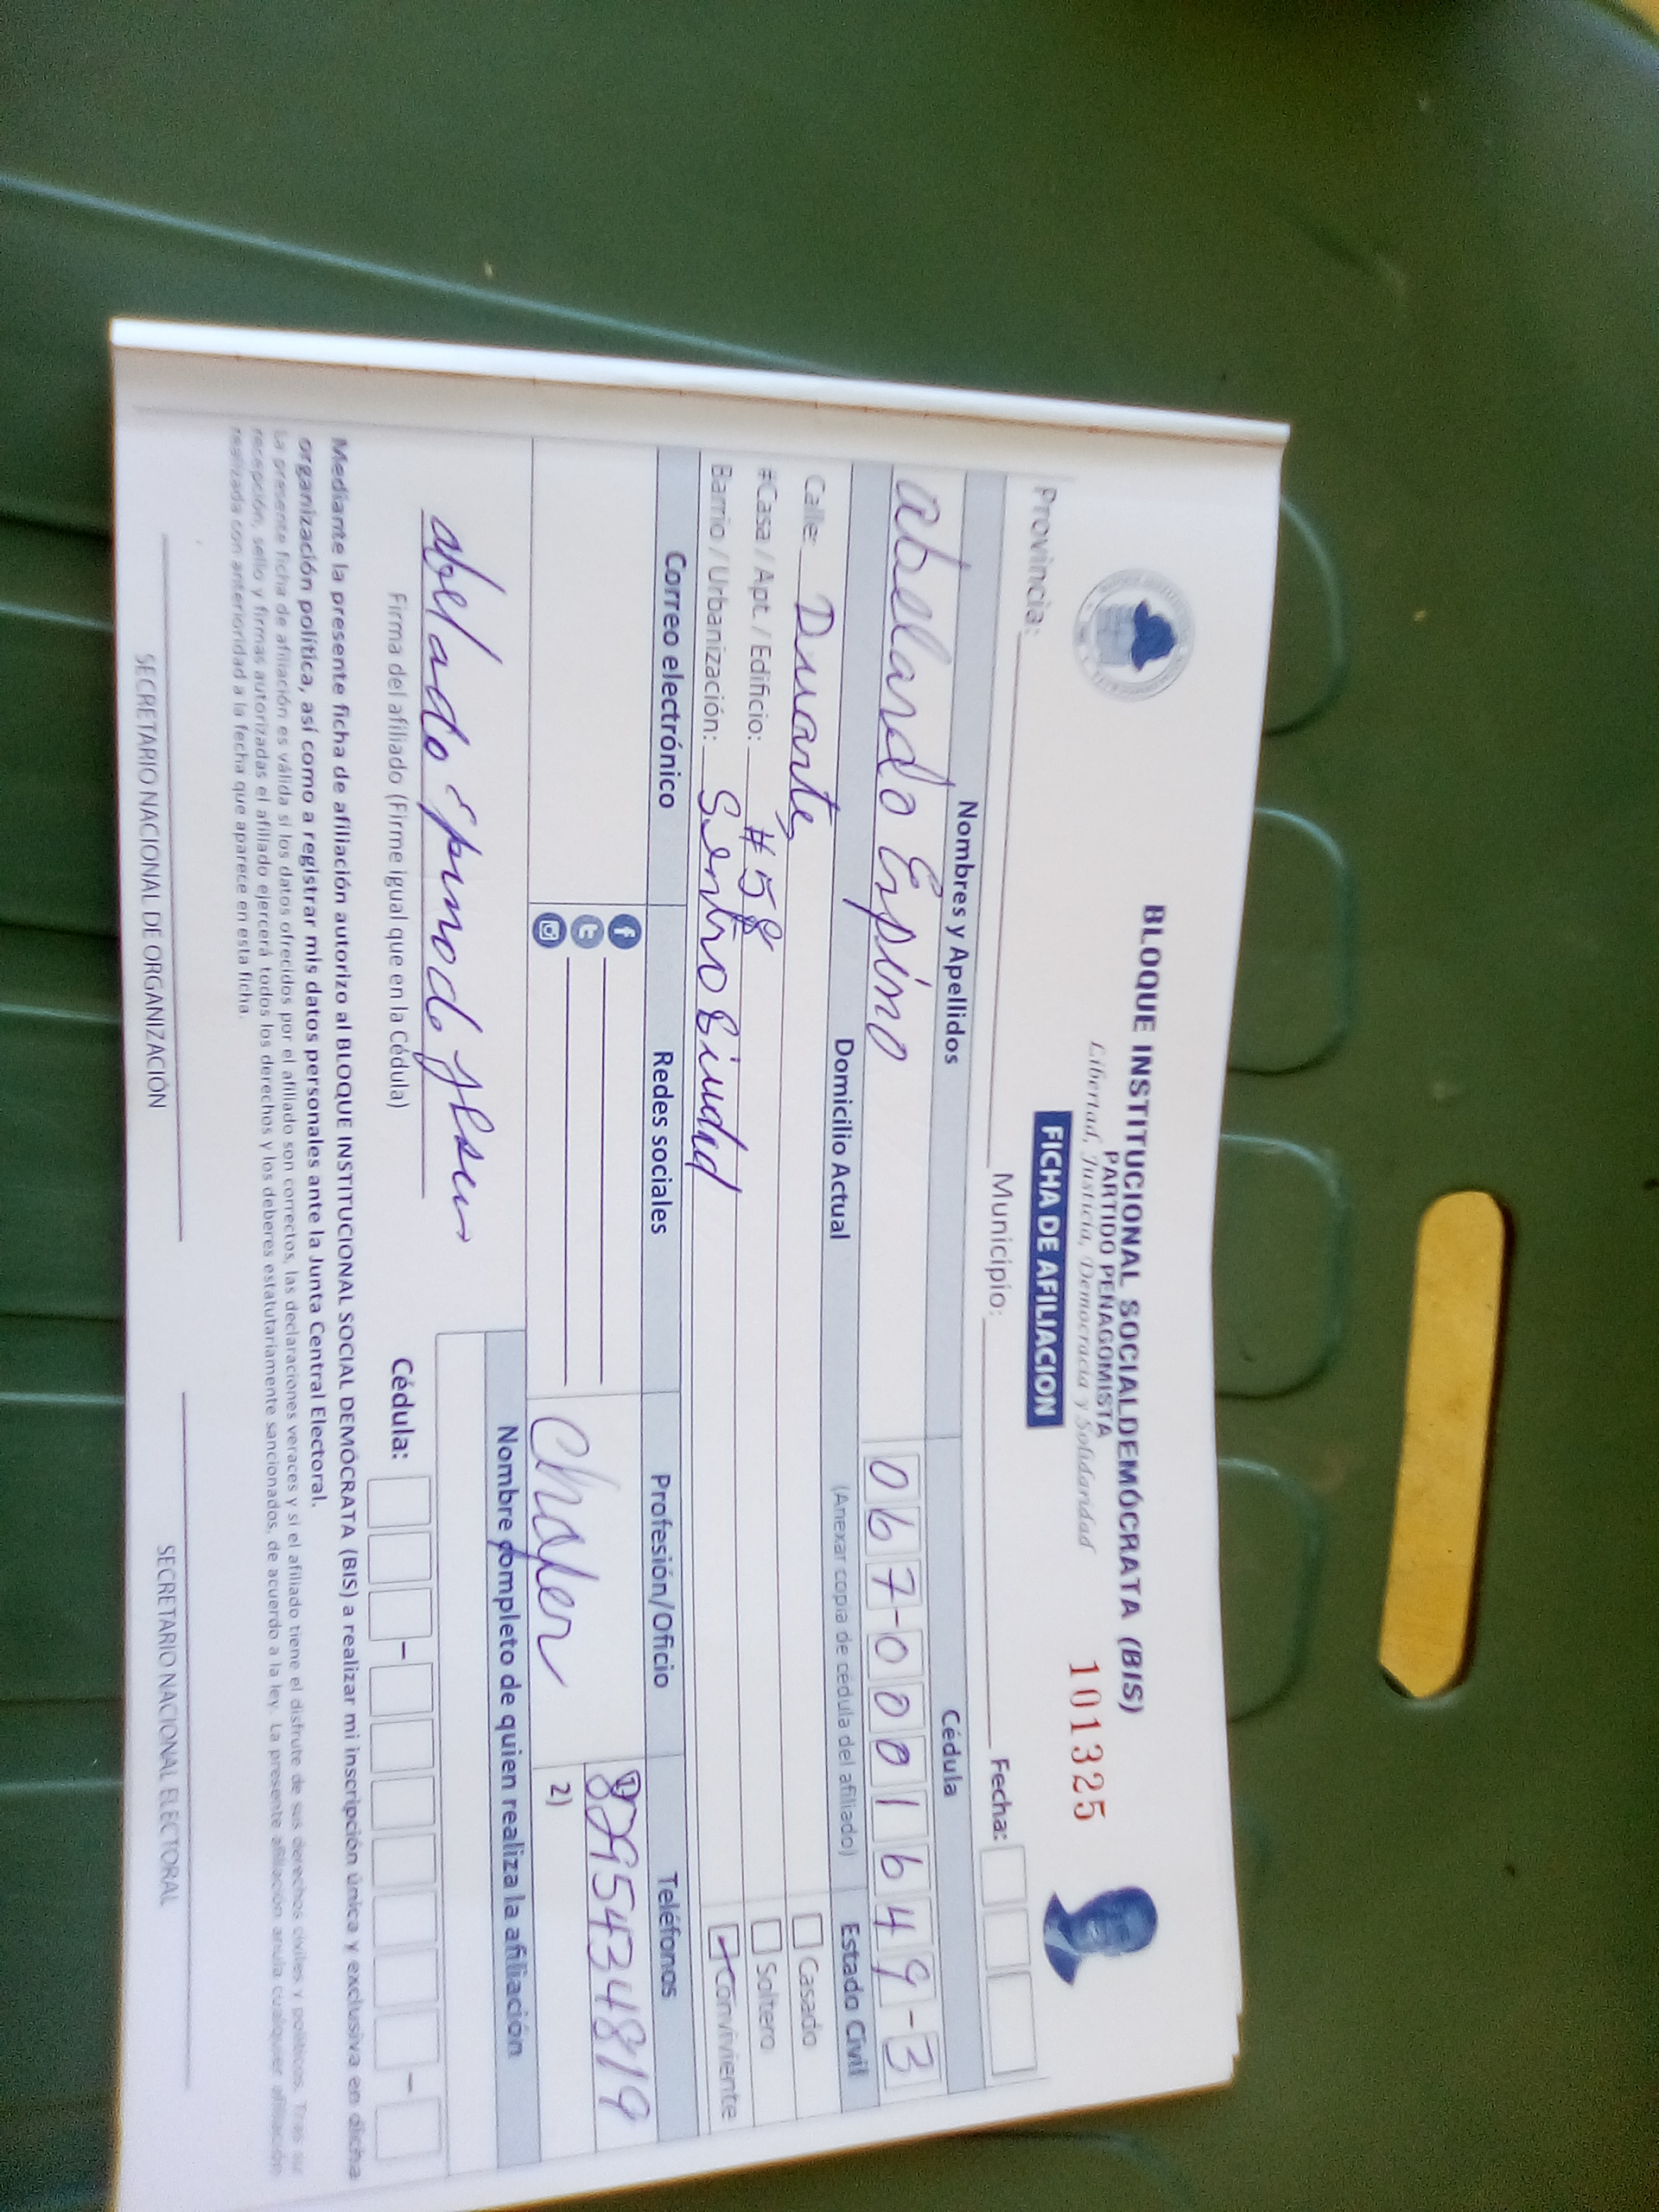 BLOQUE INSTITUCIONAL SOCIALDEMÓCRATA (BIS)
PARTIDO PEÑAGOMISTA
Libertad, Justicia, Democracia y Solidaridad
101325
FICHA DE AFILIACION
Provincia: Municipio: Fecha:
Nombres y Apellidos Cédula
abselardo Espino 067-0001649-3
Domicilio Actual (Anexar copia de cédula del afiliado) Estado Civil
Calle: Duarte Casado
#Casa / Apt. / Edificio: #58 Soltero
Barrio / Urbanización: Sentro Siudad Conviviente
Correo electrónico Redes sociales Profesión/Oficio Teléfonos
Chofer 1) 8295434819
2)
Nombre completo de quien realiza la afiliación
abelado Espino d Jesus
Firma del afiliado (Firme igual que en la Cédula) Cédula:
Mediante la presente ficha de afiliación autorizo al BLOQUE INSTITUCIONAL SOCIAL DEMÓCRATA (BIS) a realizar mi inscripción única y exclusiva en dicha
organización política, así como a registrar mis datos personales ante la Junta Central Electoral.
La presente ficha de afiliación es válida si los datos ofrecidos por el afiliado son correctos, las declaraciones veraces y si el afiliado tiene el disfrute de sus derechos civiles y políticos. Tras su
recepción, sello y firmas autorizadas el afiliado ejercerá todos los derechos y los deberes estatutariamente sancionados, de acuerdo a la ley. La presente afiliación anula cualquier afiliación
realizada con anterioridad a la fecha que aparece en esta ficha.
SECRETARIO NACIONAL DE ORGANIZACIÓN SECRETARIO NACIONAL ELECTORAL